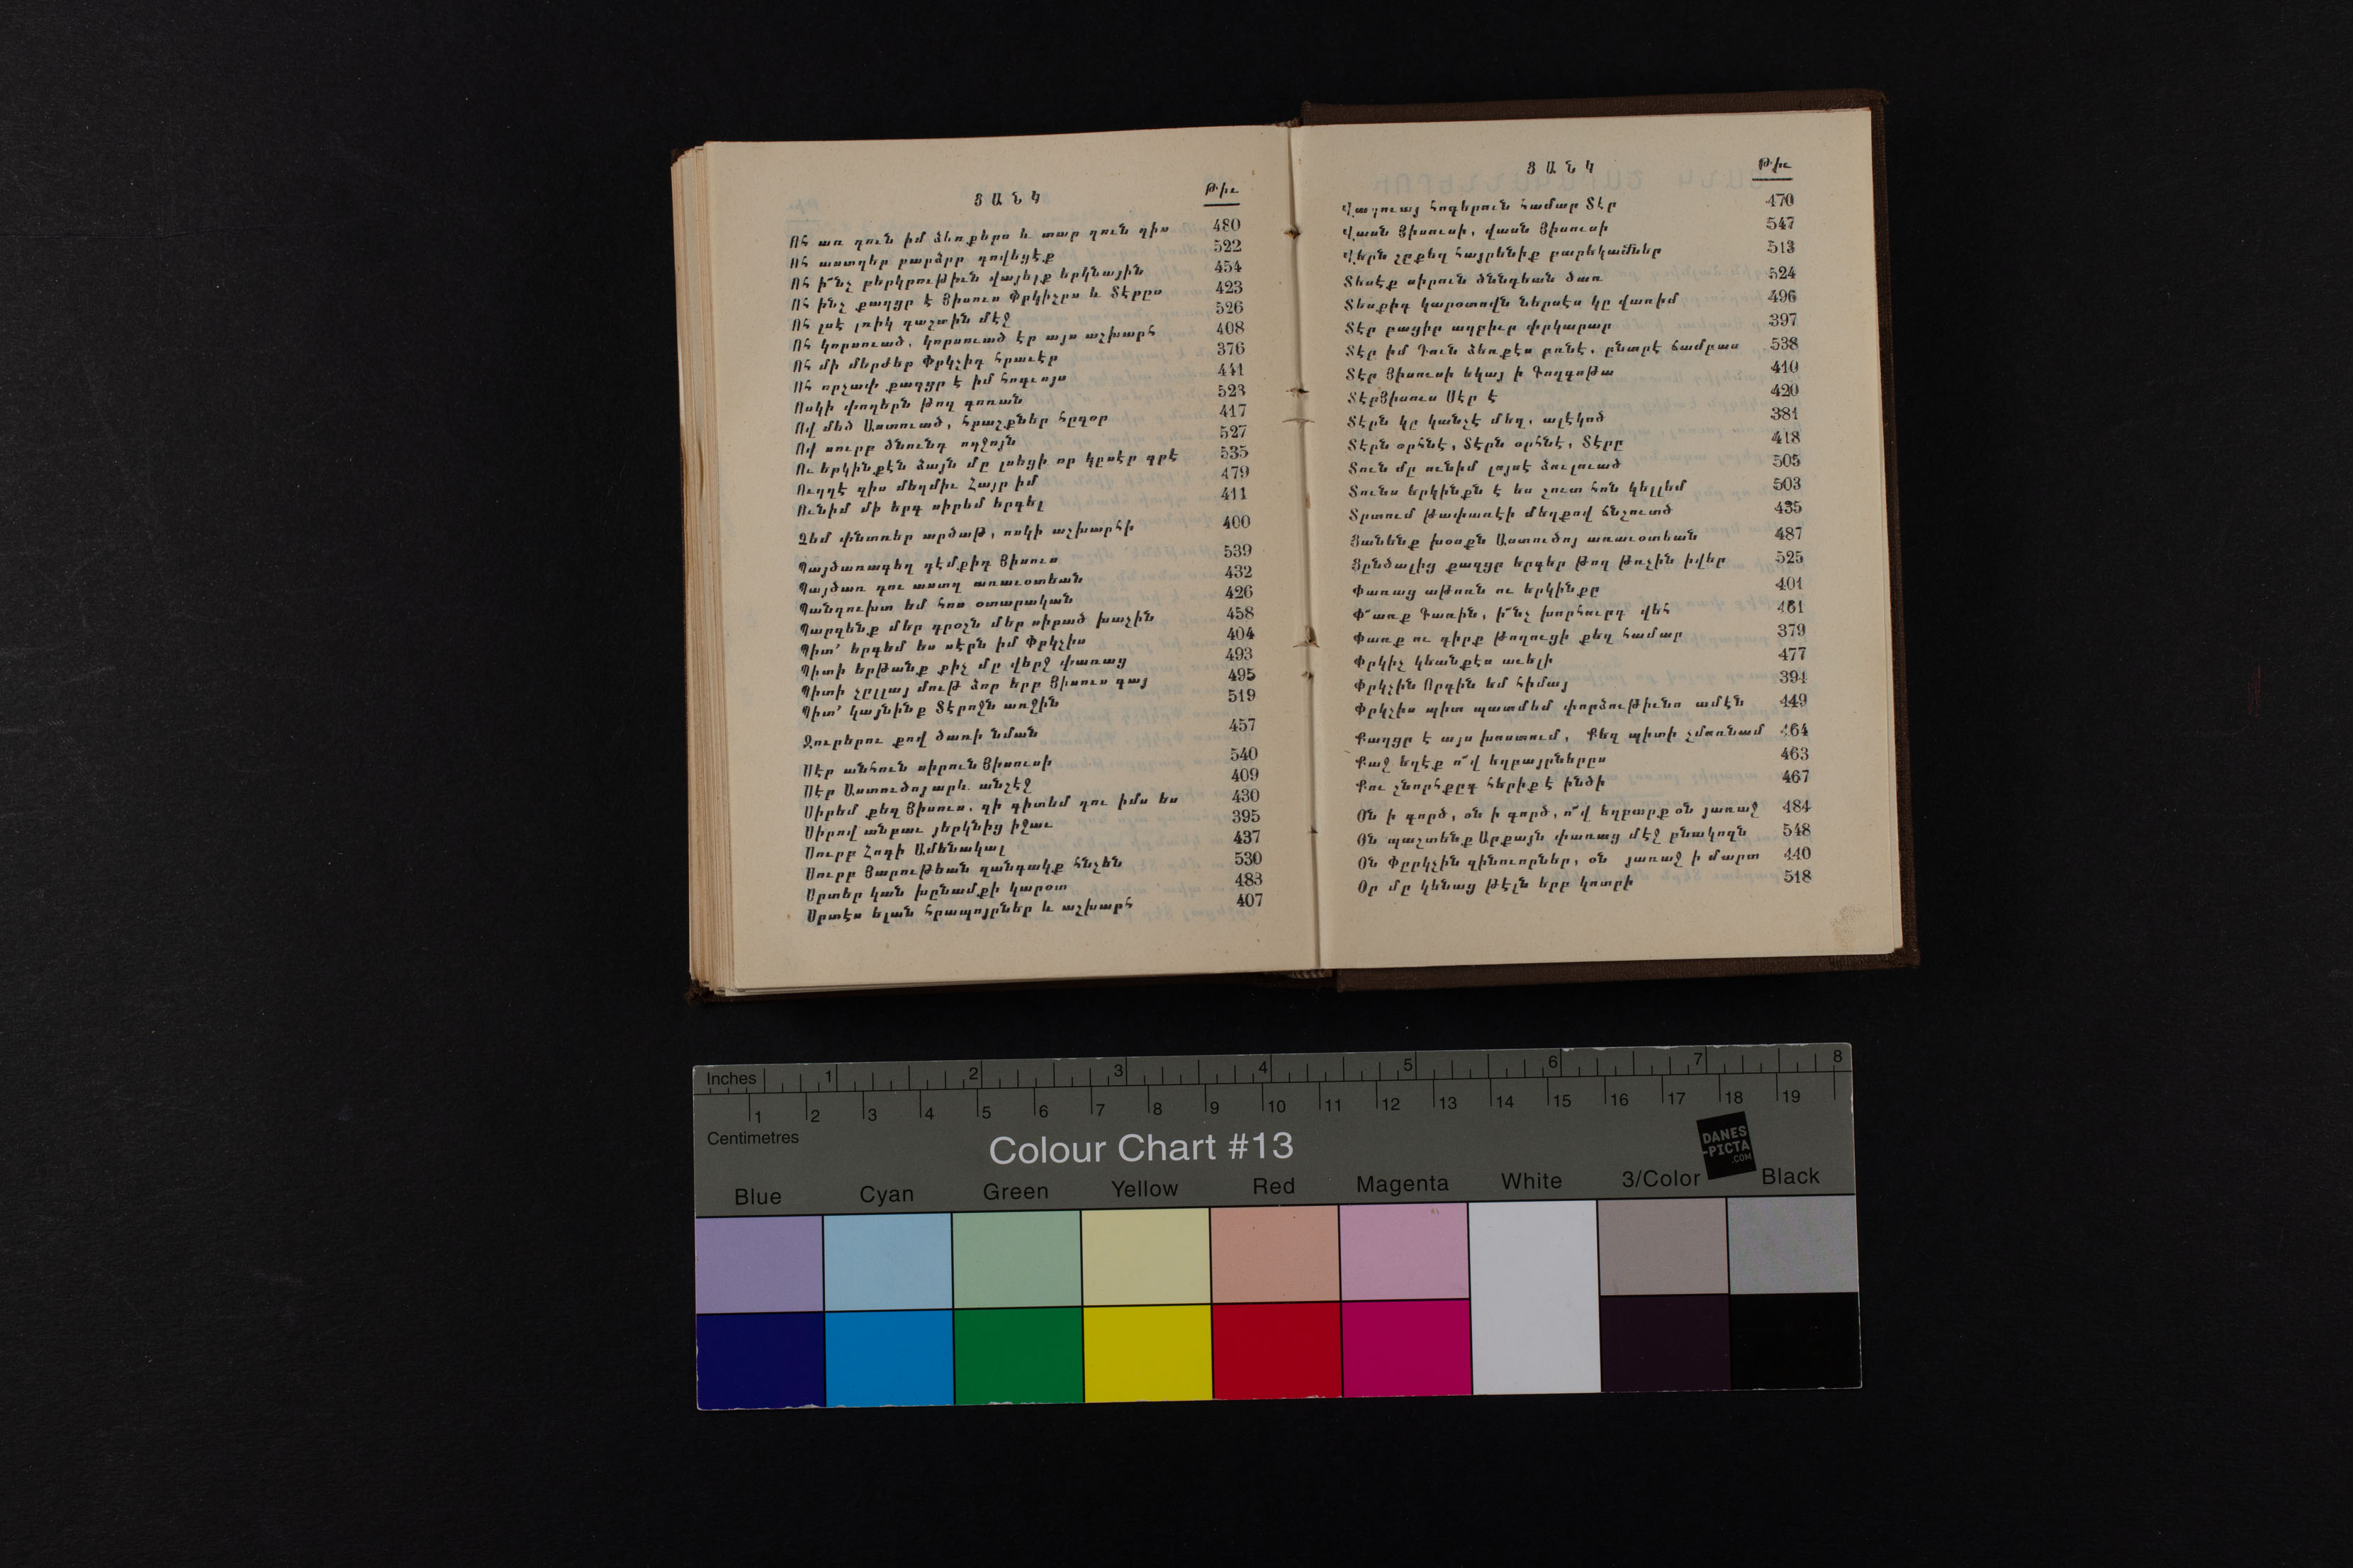 ՑԱՆԿ
Թիւ
Ոհ առ դուն իմ ձեռքերս և տար դուն զիս 480
Ոհ աստղեր բարձրը գովեցէք 522
Ոհ ի՜նչ բերկրութիւն վայելք երկնային 454
Ոհ ինչ քաղցր է Յիսուս Փրկիչըս և Տէրըս 423
Ոհ լսէ լռիկ դաշտին մէջ 526
Ոհ կորսուած, կորսուած էր այս աշխարհ 408
Ոհ մի մերժեր Փրկչիդ հրաւէր 376
Ոհ որչափ քաղցր է իմ հոգւոյս 441
Ոսկի փողերն թող գոռան 523
Ով մեծ Աստուած, հրաշքներ հըզօր 417
Ով սուրբ ծնունդ ողջոյն 527
Ու երկինքէն ձայն մը լսեցի որ կըսէր գրէ 535
Ուղղէ զիս մեղմիւ Հայր իմ 479
Ունիմ մի երգ սիրեմ երգել 411
Չեմ փնտռեր արծաթ, ոսկի աշխարհի 400
Պայծառագեղ դէմքիդ Յիսուս 539
Պայծառ դու աստղ առաւօտեան 432
Պանդուխտ եմ հոս օտարական 426
Պարզենք մեր դրօշն մեր սիրած խաչին 458
Պիտ՛ երգեմ ես սէրն իմ Փրկչիս 404
Պիտի երթանք քիչ մը վերջ փառաց 493
Պիտի չըլլայ մութ ձոր երբ Յիսուս գայ 495
Պիտ՛ կայնինք Տէրոջն առջին 519
Ջուրերու քով ծառի նման 457
Սէր անհուն սիրուն Յիսուսի 540
Սէր Աստուծոյ արև անշէջ 409
Սիրեմ քեզ Յիսուս, զի գիտեմ դու իմս ես 430
Սիրով անբաւ յերկնից իջաւ 395
Սուրբ Հոգի Ամենակալ 437
Սուրբ Յարութեան զանգակք հնչեն 530
Սրտեր կան խընամքի կարօտ 483
Սրտէս ելան հրապոյրներ և աշխարհ 407
ՑԱՆԿ
Թիւ
Վաղուայ հոգերուն համար Տէր 470
Վասն Յիսուսի, վասն Յիսուսի 547
Վերն չըքեղ հայրենիք բարեկամներ 513
Տեսէք սիրուն ծննդեան ծառ 524
Տեսքիդ կարօտովն ներսէս կը վառիմ 496
Տէր բացիր աղբիւր փրկարար 397
Տէր իմ Դուն ձեռքէս բռնէ, ընտրէ ճամբաս 538
Տէր Յիսուսի եկայ ի Գողգոթա 410
ՏէրՅիսուս Սէր է 420
Տէրն կը կանչէ մեղ, ալէկոծ 381
Տէրն օրհնէ, Տէրն օրհնէ, Տէրը 418
Տուն մը ունիմ լոյսէ ձուլուած 505
Տունս երկինքն է ես շուտ հոն կելլեմ 503
Տրտում թափառէի մեղքով ճնշուած 435
Ցանենք խօսքն Աստուծոյ առաւօտեան 487
Ցընծալից քաղցր երգեր թող թռչին իվեր 525
Փառաց աթոռն ու երկինքը 401
Փ՜առք Գառին, ի՜նչ խորհուրդ վեհ 461
Փառք ու դիրք թողուցի քեզ համար 379
Փրկիչ կեանքէս աւելի 477
Փրկչին Որդին եմ հիմայ 394
Փրկչիս պիտ պատմեմ փորձութիւնս ամէն 449
Քաղցր է այս խոստում, Քեզ պիտի չմոռնամ 464
Քաջ եղէք ո՜վ եղբայրներըս 463
Քու շնորհքըդ հերիք է ինծի 467
Օն ի գործ, օն ի գործ, ո՜վ եղբարք օն յառաջ 484
Օն պաշտենք Արքայն փառաց մէջ բնակողն 548
Օն Փըրկչին զինուորներ, օն յառաջ ի մարտ 440
Օր մը կենաց թէլն երբ կտտրի 518
Inches 1 2 3 4 5 6 7 8
1 2 3 4 5 6 7 8 9 10 11 12 13 14 15 16 17 18 19
Centimetres
Colour Chart #13
DANES
-PICTA
.COM
Blue Cyan Green Yellow Red Magenta White 3/Color Black